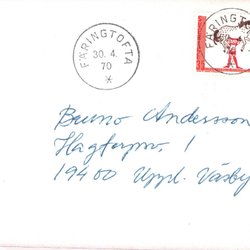 FÄRINGTOFTA
30. 4.
70
FÄRINGTOFTA
Bruno Andersson
Hagtornv. 1
19400 Uppl. Väsby